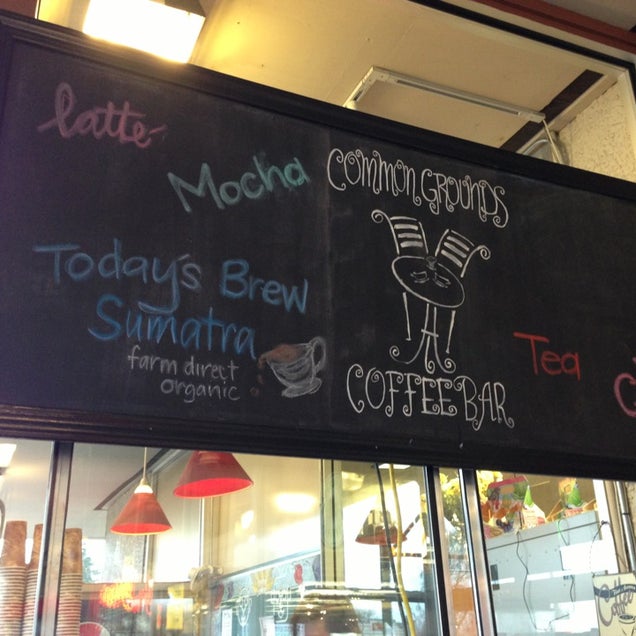 latte
Mocha
Today's Brew
Sumatra
farm direct
organic
COMMON GROUNDS
COFFEE BAR
Tea